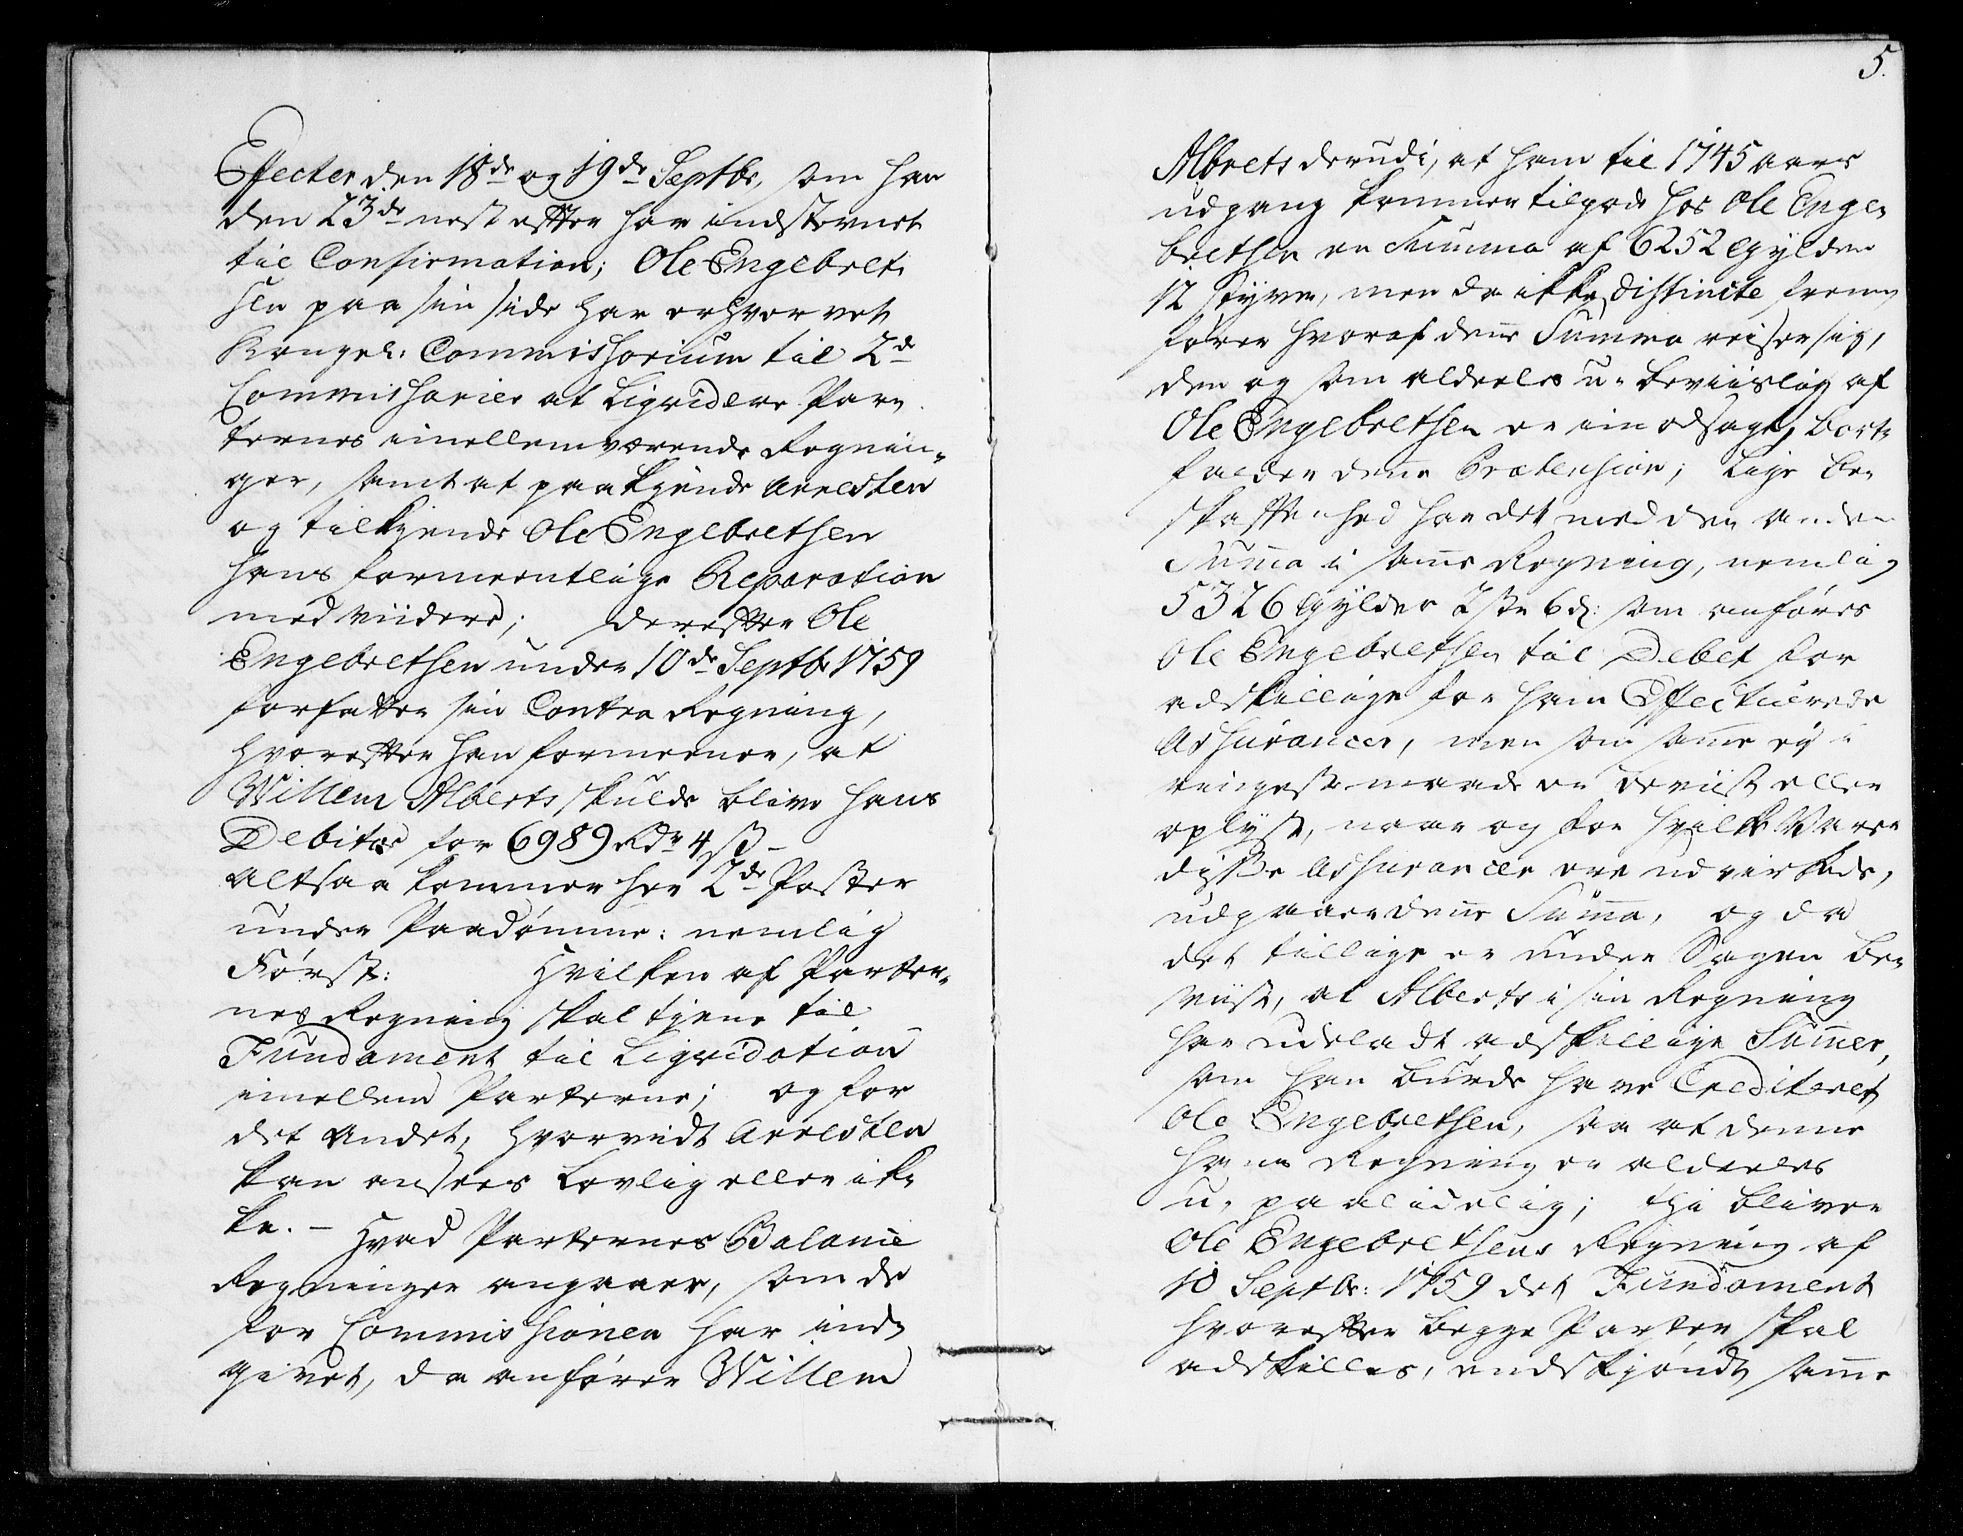 Effecter den 18de og 19de Septbr, som han
den 23de nest efter har indstevnet
til Confirmation; Ole Engebret-
sen paa sin side har erhvervet
Kongel: Commissorium til 2de
Commissarier at Liqvidere Par-
ternes imellemværende Regnin-
ger, samt at paakjende Arresten
og tilkjende Ole Engebretsen
hans formeentlige Reparation
med viidere; derefter Ole
Engebretsen under 10de Septbr 1759
forfatter sin Contra Regning,
hvorefter han formeener, at
Willem Alberts skulde blive hans
Debitor for 6989 Rdr 4 ß -
altsaa kommer her 2de Poster
under Paadømme: nemlig
Først: Hvilken af Parter-
nes Regning skal tjene til
Fundament til Liqvidation
imellem Parterne; og for
det Andet, hvorvidt Arresten
kan ansees Lovlig eller ik-
ke. - Hvad Parternes Balance
Regninger angaaer, som de
for Commissionen har ind-
givet, da anfører Willem
5.
Albrets derudi, at ham til 1745 aars
udgang kommer tilgode hos Ole Enge-
bretsen en Summa af 6252 Gylden
12 styver, men da ikke distincte frem-
fører hvoraf denne Summa reiser sig,
den og som aldeeles u-beviislig af
Ole Engebretsen er imodsagt, bort-
falder denne Prætension; Lige be-
skaffenhed har det med den anden
Summa i samme Regning, nemlig
5326 Gylden 2 st 6 d: som anføres
Ole Engebretsen til Debet for
adskillige for ham Effectuerede
Assurancer, men som samme ey i
ringeste maade er beviist eller
oplyst, naar og for hvilke Varer
disse Assurancer ere udvirkede,
udgaaer denne Summa, og da
det tillige er under Sagen be-
viist, at Alberts i sin Regning
har udeladt adskillige Summer,
som han burde have Crediteret
Ole Engebretsen, saa at denne
hans Regning er aldeeles
u-paalidelig; thi bliver
Ole Engebretsens Regning af
10 Septbr: 1759 det Fundament
hvorefter begge Parter skal
adskilles, endskjøndt samme